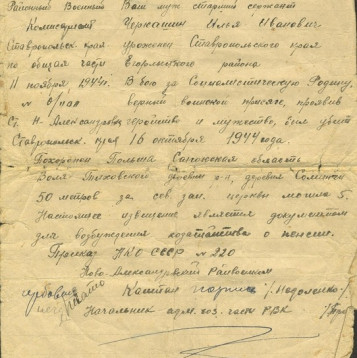 Районный Военный Ваш муж старший сержант
Комиссариат Черкашин Илья Иванович
Ставропольск. края уроженец Ставропольского края
по общая части Егорлыцкого района
11 ноября 1944г. В бою за Социалистическую Родину,
№ верный воинской присяге, проявив
Ст. Н. Александровск геройство и мужество, был убит
Ставропольск. края 16 октября 1944 года.
Похоронен Польша область
Воля деревня
50 метров за сев. зап. церкви могила 5.
Настоящее извещение является документом
для возбуждения ходатайства о пенсии.
Приказ НКО СССР № 220
Ново Александровский Райвоенком
Капитан
Начальник адм. хоз. части РВК